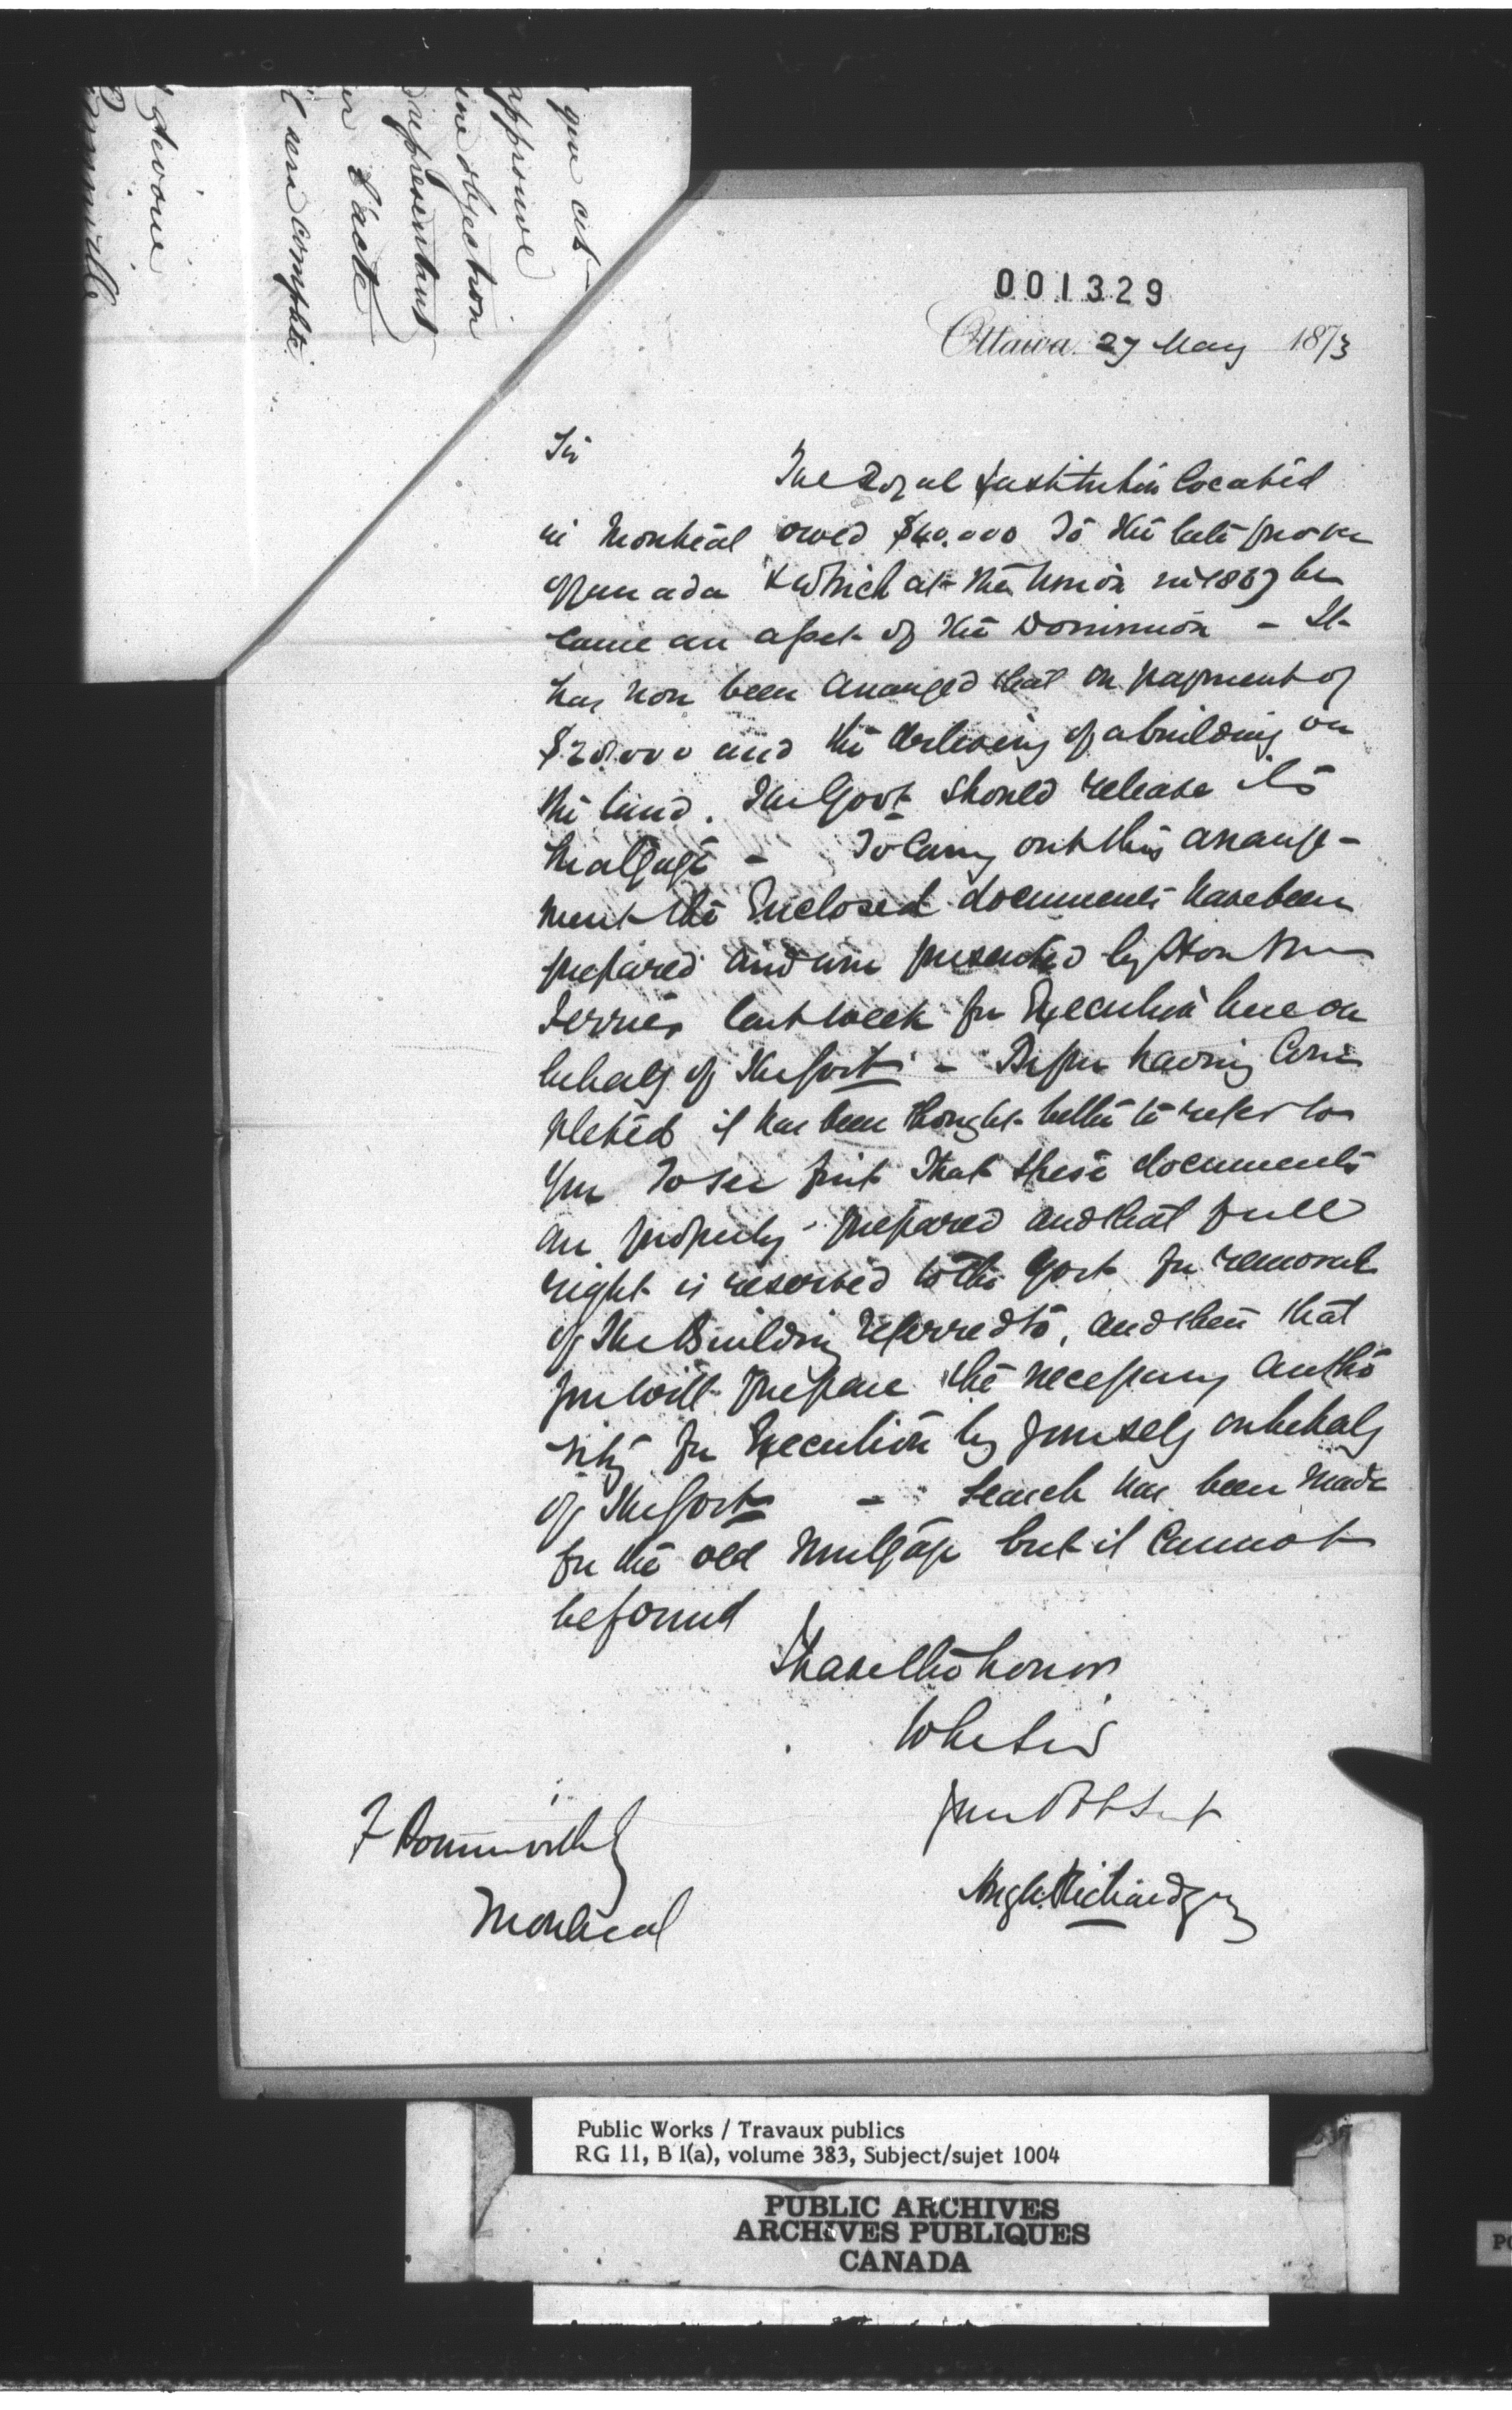 que cet
approuve
une objection
représentant
l'acte
sera complète
001329
Ottawa 27 May 1873
Sir
The Royal Institution located
in Montreal owed $40.000 to the late provce
of Canada & which at the Union in 1867 be
came an asset of the Dominion - It
has now been arranged that on payment of
$20.000 and the of a building on
the land. The Govt should release its
Mortgage - To carry out this arrange-
ment the Enclosed documents have been
prepared and were presented by Hon Mr
Ferrier last week for Execution here on
behalf of the Govt - Before having com
pleted it has been thought better to refer to
you To see first That these documents
are properly prepared and that full
right is reserved to the Govt for removal
of the Building referred to, and then that
you will prepare the necessary autho
rity for Execution by yourself on behalf
of the Govt - Search has been made
for the old Mortgage but it cannot
be found
I have the honor
to be Sir
your Obt Sert
Hugh Richardson
F
Montreal
Public Works / Travaux publics
RG 11, B 1(a), volume 383, Subject/sujet 1004
PUBLIC ARCHIVES
ARCHIVES PUBLIQUES
CANADA